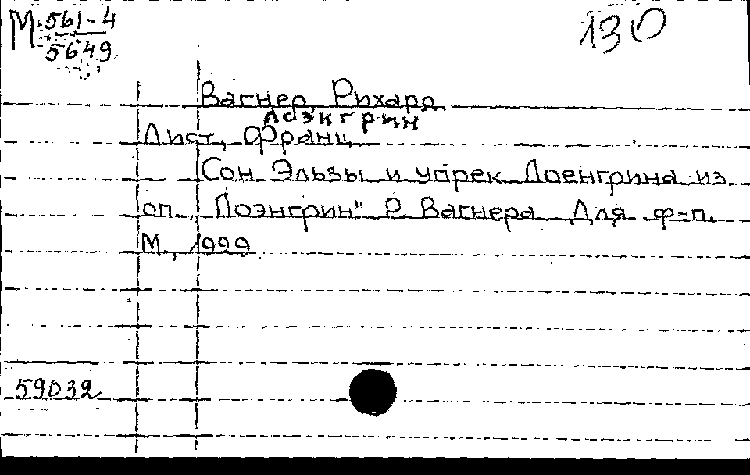 М 561-4
5649
130
Вагнер, Рихард
Лоэнгрин
Лист, Франц
Сон Эльзы и упрек Лоенгрина из
оп. "Лоэнгрин" Р. Вагнера. Для ф-п.
М., 1999
59032